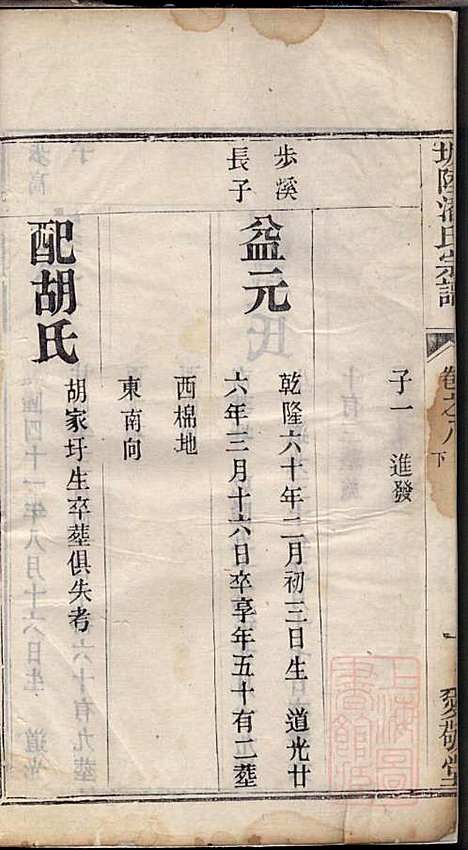 潘氏宗譜
卷之八
下
愛敬堂
子一 進發
步溪
長子
益元
乾隆六十年二月初三日生 道光廿
六年三月十六日卒享年五十有二塟
西棉地
東南向
配胡氏
胡家圩生卒塟俱失考